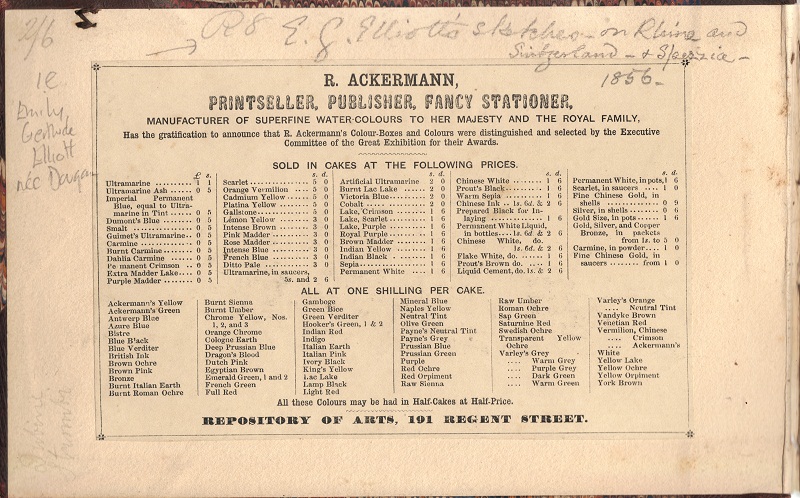 2/6
R 8 E. G. Elliott's sketches - on Rhine and
Switzerland - & Spezzia -
1856 -
i.e
Emily
Gertrude
Elliott
née
R. ACKERMANN,
PRINTSELLER, PUBLISHER, FANCY STATIONER,
MANUFACTURER OF SUPERFINE WATER-COLOURS TO HER MAJESTY AND THE ROYAL FAMILY,
Has the gratification to announce that R. Ackermann's Colour-Boxes and Colours were distinguished and selected by the Executive
Committee of the Great Exhibition for their Awards.
SOLD IN CAKES AT THE FOLLOWING PRICES.
£ s.
Ultramarine .......... 1 1
Ultramarine Ash ...... 0 5
Imperial Permanent
Blue, equal to Ultra-
marine in Tint ...... 0 5
Dumont's Blue ........ 0 5
Smalt ................ 0 5
Guimet's Ultramarine.. 0 5
Carmine .............. 0 5
Burnt Carmine ........ 0 5
Dahlia Carmine ....... 0 5
Pe manent Crimson .... 0 5
Extra Madder Lake..... 0 5
Purple Madder ........ 0 5
s. d.
Scarlet .............. 5 0
Orange Vermilion ..... 5 0
Cadmium Yellow ....... 5 0
Platina Yellow ....... 5 0
Gallstone ............ 5 0
Lemon Yellow ......... 3 0
Intense Brown ........ 3 0
Pink Madder .......... 3 0
Rose Madder .......... 3 0
Intense Blue ......... 3 0
French Blue .......... 3 0
Ditto Pale ........... 3 0
Ultramarine, in saucers,
5s. and 2 6
s. d.
Artificial Ultramarine 2 0
Burnt Lac Lake ....... 2 0
Victoria Blue ........ 2 0
Cobalt ............... 2 0
Lake, Crimson ........ 1 6
Lake, Scarlet ........ 1 6
Lake, Purple ......... 1 6
Royal Purple ......... 1 6
Brown Madder ......... 1 6
Indian Yellow ........ 1 6
Indian Black ......... 1 6
Sepia ................ 1 6
Permanent White ...... 1 6
s. d.
Chinese White ........ 1 6
Prout's Black ........ 1 6
Warm Sepia ........... 1 6
Chinese Ink .. 1s. 6d. & 2 6
Prepared Black for In-
laying ............. 1 6
Permanent White Liquid,
in bottles.. 1s. 6d. & 2 6
Chinese White, do.
1s. 6d. & 2 6
Flake White, do. ..... 1 6
Prout's Brown do. .... 1 6
Liquid Cement, do. 1s. & 2 6
s. d.
Permanent White, in pots, 1 6
Scarlet, in saucers .... 1 0
Fine Chinese Gold, in
shells ............... 0 9
Silver, in shells ...... 0 6
Gold Size, in pots ..... 1 6
Gold, Silver, and Copper
Bronze, in packets
from 1s. to 5 0
Carmine, in powder..... 1 0
Fine Chinese Gold, in
saucers ........ from 1 0
ALL AT ONE SHILLING PER CAKE.
Ackermann's Yellow
Ackermann's Green
Antwerp Blue
Azure Blue
Bistre
Blue Black
Blue Verditer
British Ink
Brown Ochre
Brown Pink
Bronze
Burnt Italian Earth
Burnt Roman Ochre
Burnt Sienna
Burnt Umber
Chrome Yellow, Nos.
1, 2, and 3
Orange Chrome
Cologne Earth
Deep Prussian Blue
Dragon's Blood
Dutch Pink
Egyptian Brown
Emerald Green, 1 and 2
French Green
Full Red
Gamboge
Green Bice
Green Verditer
Hooker's Green, 1 & 2
Indian Red
Indigo
Italian Earth
Italian Pink
Ivory Black
King's Yellow
Lac Lake
Lamp Black
Light Red
Mineral Blue
Naples Yellow
Neutral Tint
Olive Green
Payne's Neutral Tint
Payne's Grey
Prussian Blue
Prussian Green
Purple
Red Ochre
Red Orpiment
Raw Sienna
Raw Umber
Roman Ochre
Sap Green
Saturnine Red
Swedish Ochre
Transparent Yellow
Ochre
Varley's Grey
.... Warm Grey
.... Purple Grey
.... Dark Green
.... Warm Green
Varley's Orange
.... Neutral Tint
Vandyke Brown
Venetian Red
Vermilion, Chinese
.... Crimson
.... Ackermann's
White
Yellow Lake
Yellow Ochre
Yellow Orpiment
York Brown
All these Colours may be had in Half-Cakes at Half-Price.
REPOSITORY OF ARTS, 191 REGENT STREET.